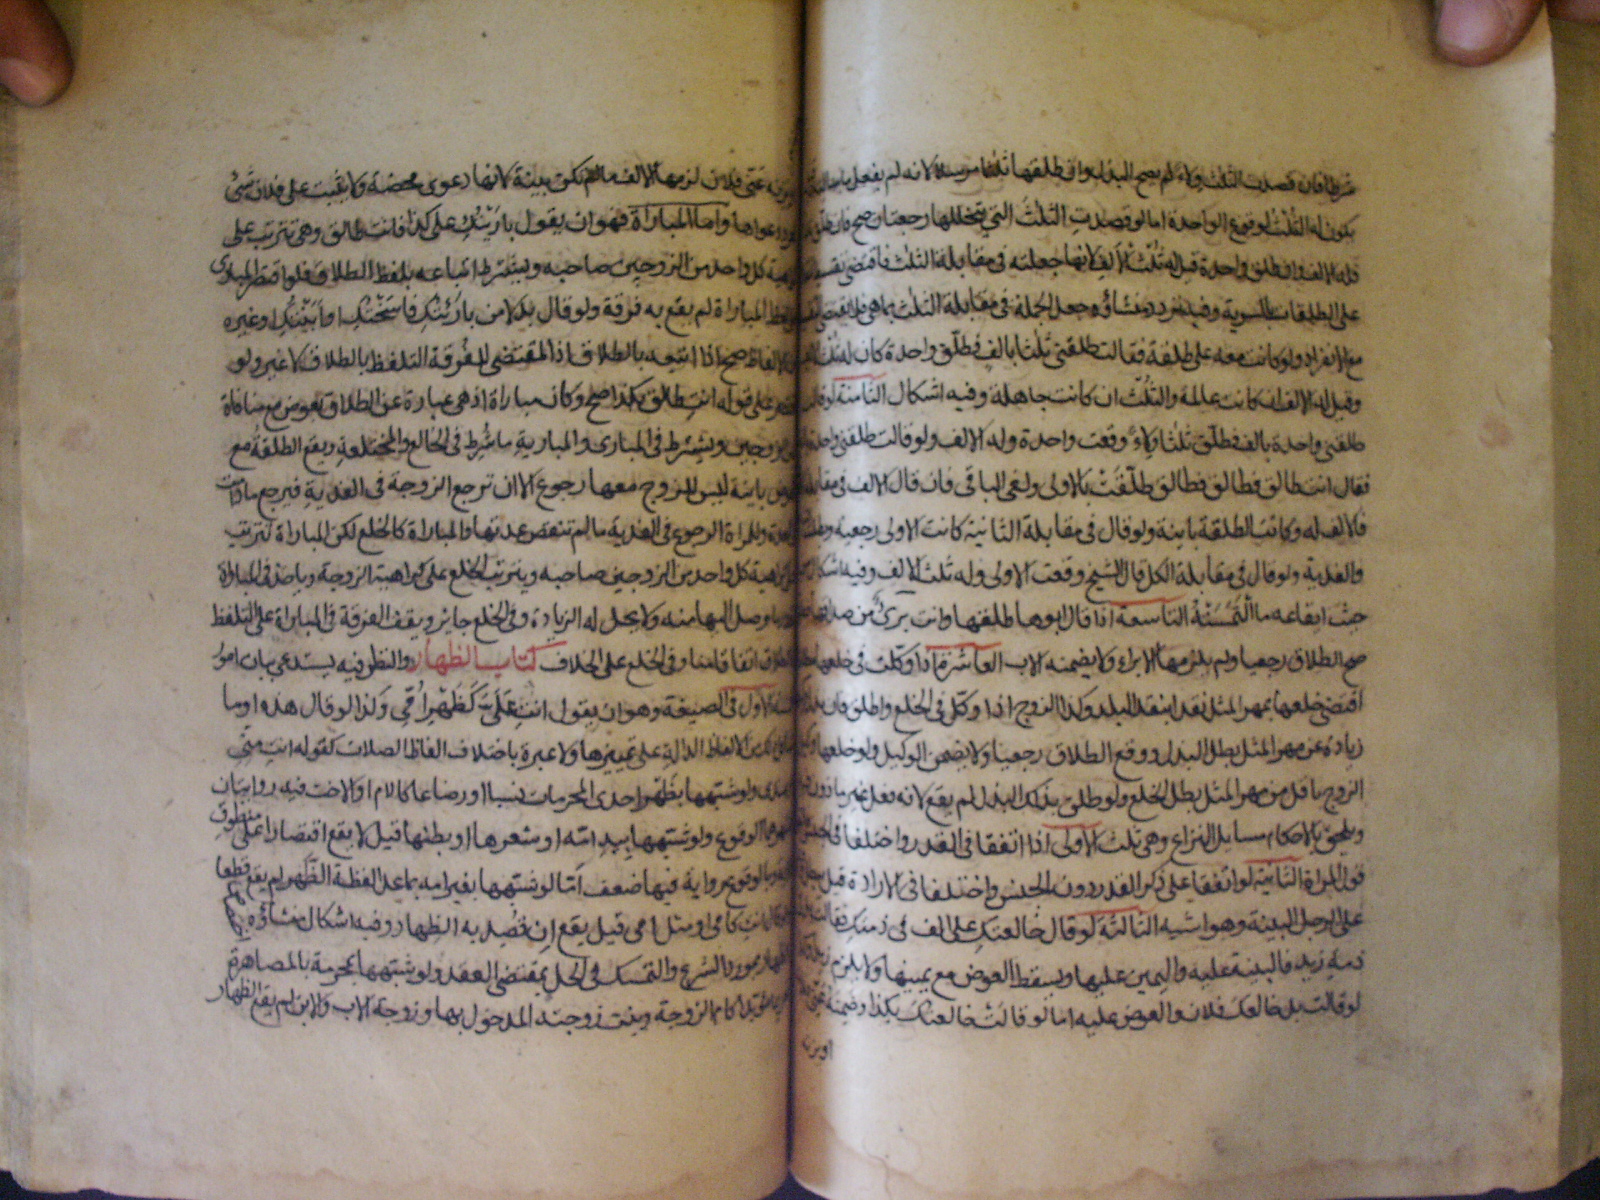 شرطا فان قصدت الثلث ولاء لم يصح البذل وان طلقها ثلثا مرسلا لانه لم يفعل ما سالته
يكون له الثلث لوقوع الواحدة اما لو قصدت الثلث التي يتخللها رجعتان صح فان طلق
فله الالف وان طلق واحدة قيل له ثلث الالف لانها جعلته في مقابلة الثلث فاقتضى تقسيط
على الطلقات بالسوية وفيه تردد منشاؤه جعل الجملة في مقابلة الثلث بما هي فلا يقتضي
مع الانفراد ولو كانت معه على طلقة فقالت طلقني ثلثا بالف فطلق واحدة كان له ثلث
وقيل له الالف ان كانت عالمة والثلث ان كانت جاهلة وفيه اشكال الثامنة لو قالت
طلقني واحدة بالف فطلق ثلثا ولاء وقعت واحدة وله الالف ولو قالت طلقني واحدة
فقال انت طالق فطالق فطالق طلقت بالاولى ولغى الباقي فان قال الالف في مقابلة
فالالف له وكانت الطلقة باينة ولو قال في مقابلة الثانية كانت الاولى رجعية وبطلت
والفدية ولو قال في مقابلة الكل قال الشيخ وقعت الاولى وله ثلث الالف وفيه اشكال
حيث ايقاعه ما التمسته التاسعة اذا قال ابوها طلقها وانت بريء من صداقها
صح الطلاق رجعيا ولم يلزمها الابراء ولا يضمنه الاب العاشرة اذا وكلت في خلعها
اقتضى خلعها بمهر المثل نقدا بنقد البلد وكذا الزوج اذا وكل في الخلع واطلق فان بذل
زيادة عن مهر المثل بطل البذل ووقع الطلاق رجعيا ولا يضمن الوكيل ولو خلعها
الزوج باقل من مهر المثل بطل الخلع ولو طلق بذلك البذل لم يقع لانه فعل غير ماذون
ويلحق بالاحكام مسايل النزاع وهي ثلث الاولى اذا اتفقا في القدر واختلفا في الجنس
قول المراة الثانية لو اتفقا على ذكر القدر دون الجنس واختلفا في الارادة قيل يبطل
على الرجل البينة وهو اشبه الثالثة لو قال خالعتك على الف في ذمتك فقالت
ذمة زيد فالبينة عليه واليمين عليها ويسقط العوض مع يمينها ولا يلزم
لو قالت بل خالعك فلان والعوض عليه اما لو قالت خالعتك بكذا وضمنه عني
او يزنه
يزنه عني فلان لزمها الالف ما لم تكن بينة لانها دعوى محضة ولا يثبت على فلان شيء
دعواها واما المباراة فهو ان يقول باريتك على كذا فانت طالق وهي تترتب على
كراهية كل واحد من الزوجين صاحبه ويشترط اتباعه بلفظ الطلاق فلو اقتصر المباري
لفظ المباراة لم يقع به فرقة ولو قال بدلا من باراتك فاسختك او ابنتك او غيره
الالفاظ صح اذا اتبعه بالطلاق اذ المقتضي للفرقة التلفظ بالطلاق لا غير ولو
اقتصر على قوله انت طالق بكذا صح وكان مباراة اذ هي عبارة عن الطلاق بعوض مع منافاة
الزوجين ويشترط في المباري والمبارية ما شرط في الخالع والمختلعة ويقع الطلقة مع
العوض باينة ليس للزوج معها رجوع الا ان ترجع الزوجة في الفدية فيرجع ما دامت
العدة وللمراة الرجوع في الفدية ما لم تنقض عدتها والمباراة كالخلع لكن المباراة تترتب
كراهية كل واحد من الزوجين صاحبه ويترتب الخلع على كراهية الزوجة وياخذ في المباراة
ما وصل اليها منه ولا يحل له الزيادة وفي الخلع جايز ويقف الفرقة في المباراة على التلفظ
بالطلاق اتفاقا منا وفي الخلع على الخلاف كتاب الظهار والنظر فيه يستدعي بيان امور
الاول في الصيغة وهو ان يقول انت علي كظهر امي وكذا لو قال هذه او ما
الالفاظ الدالة على تمييزها ولا عبرة باختلاف الفاظ الصلات كقوله انت مني
عندي ولو شبهها بظهر احدى المحرمات نسبا او رضاعا كالام او الاخت فيه روايتان
الوقوع ولو شبهها بيد امه او شعرها او بطنها قيل لا يقع اقتصارا على منطوق
وبالوقوع رواية فيها ضعف اما لو شبهها بغير امه بما عدا لفظة الظهر لم يقع قطعا
قال انت كامي او مثل امي قيل يقع ان قصد به الظهار وفيه اشكال منشاؤه
بمورد الشرع والتمسك في الحل بمقتضى العقد ولو شبهها بمحرمة بالمصاهرة
كام الزوجة وبنت زوجته المدخول بها وزوجة الاب والابن لم يقع الظهار